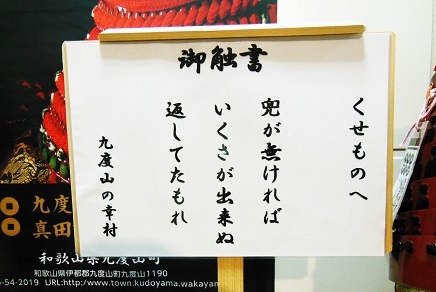 御触書
くせものへ
兜が無ければ
いくさが出来ぬ
返してたもれ
九度山の幸村
九度
真田
和歌山県九度山町
和歌山県伊都郡九度山町九度山1190
54-2019 URL:http://www.town.kudoyama.wakayama